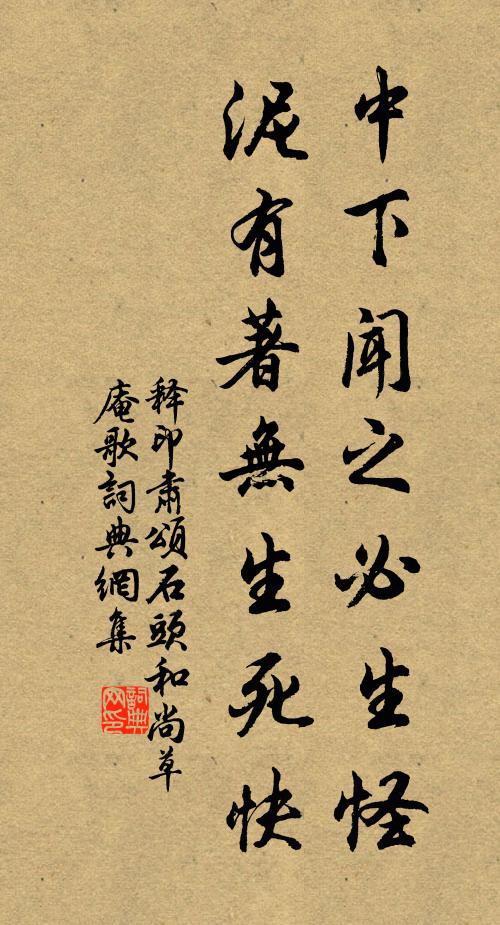 中下闻之必生怪
泥有著無生死快
释印肃頌石頭和尚草
庵歌詞典網集
詞典
网印